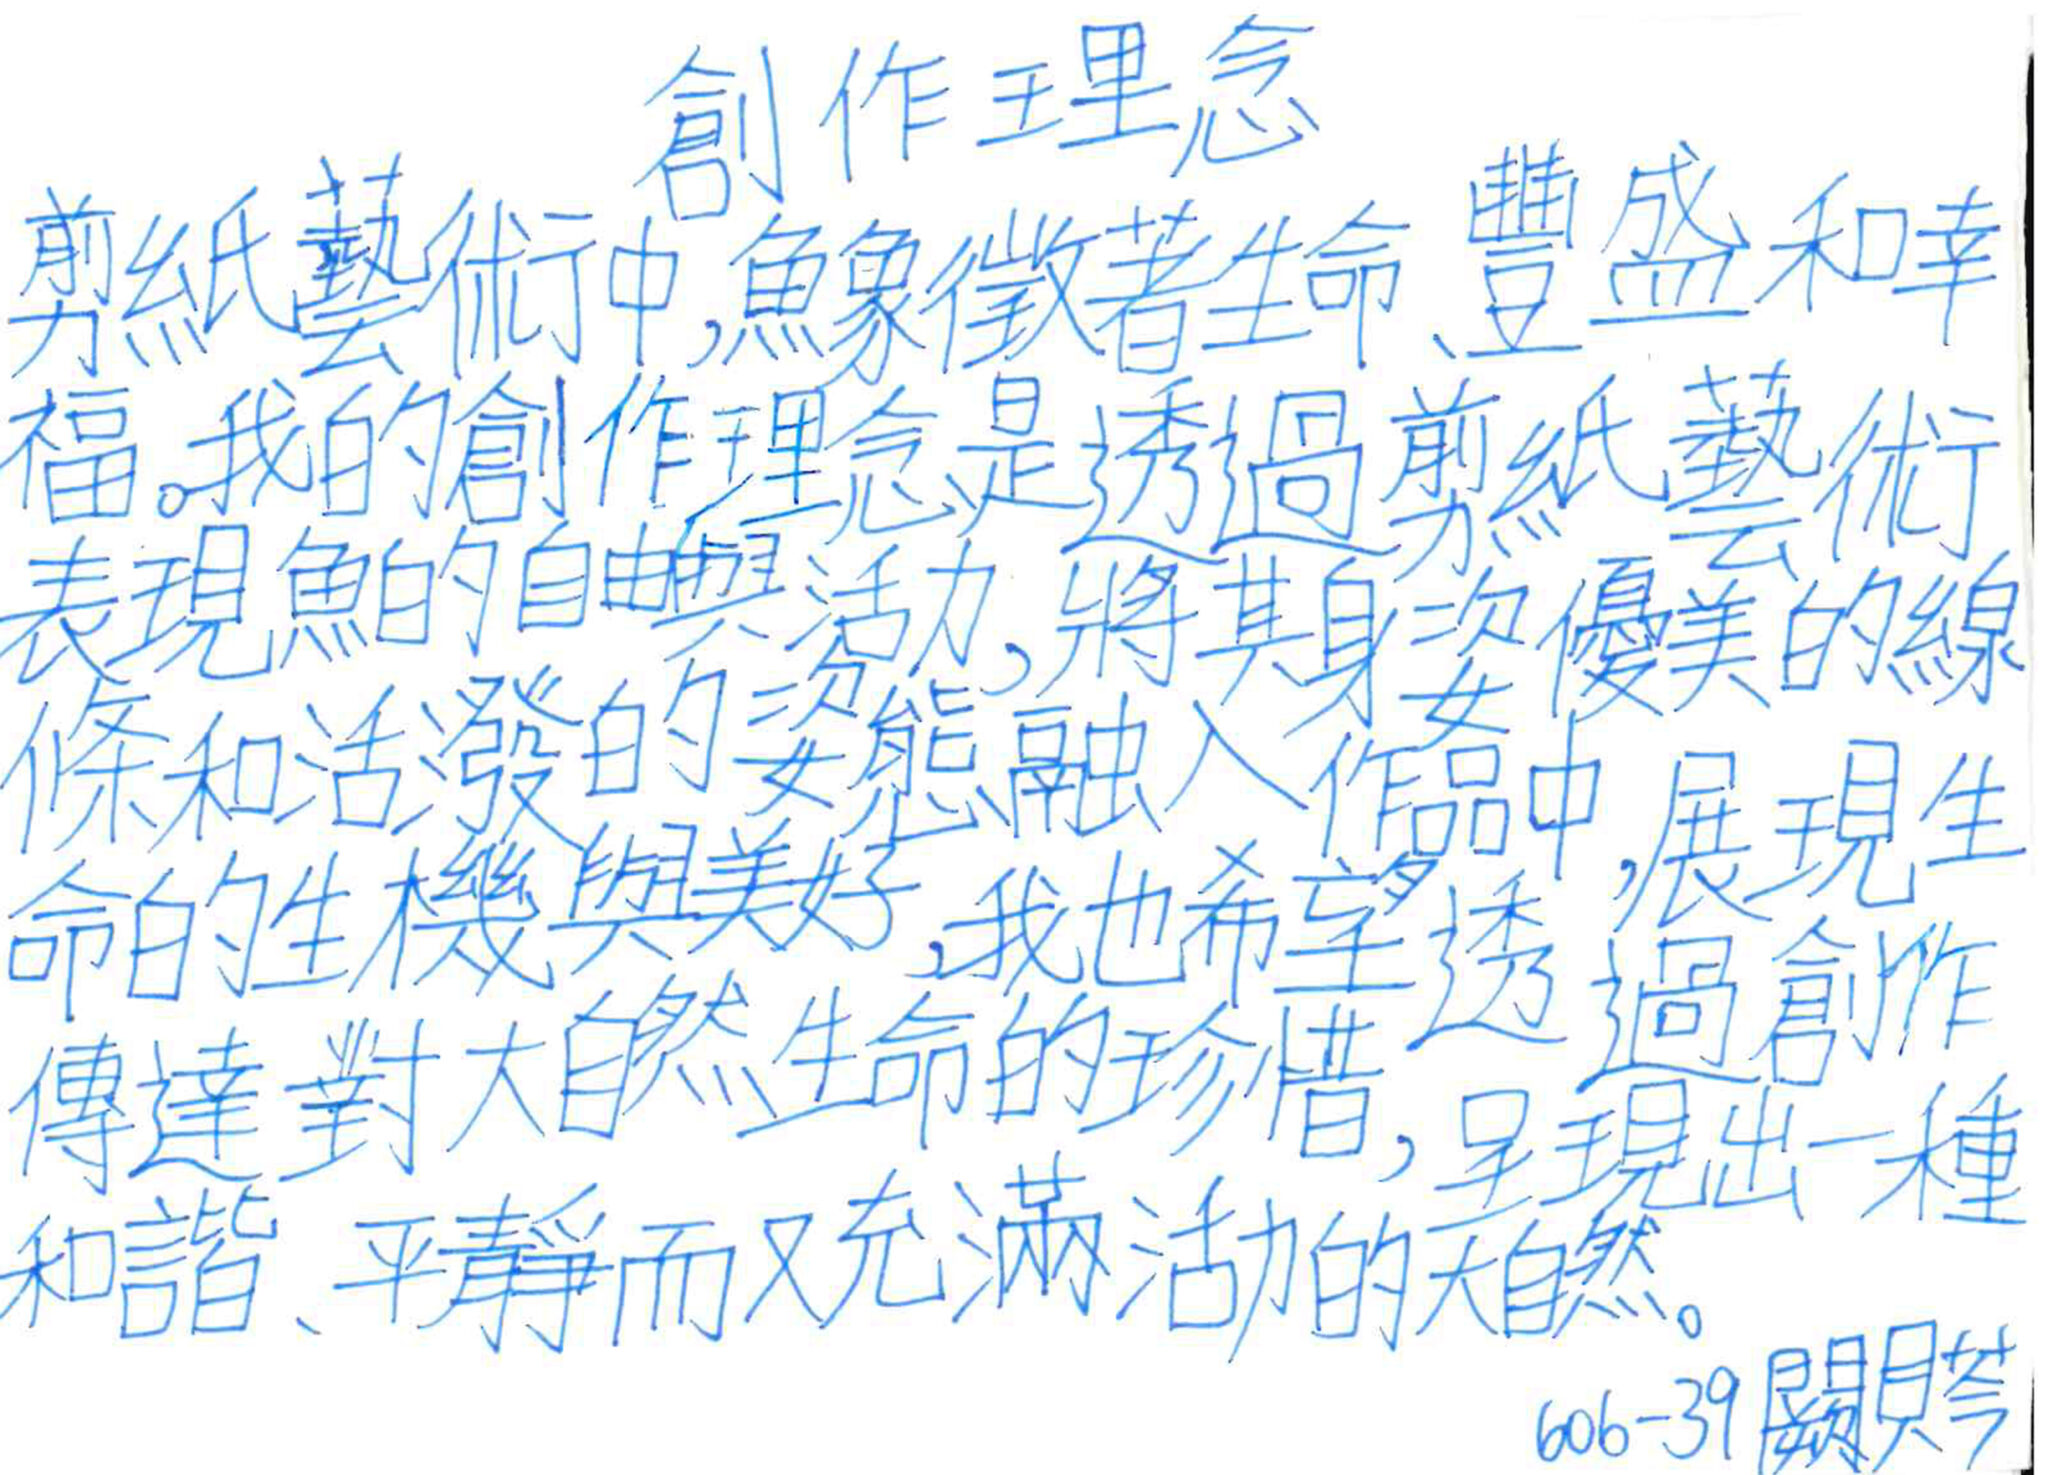 創作理念
剪紙藝術中,魚象徵著生命、豐盛和幸
福。我的創作理念是透過剪紙藝術
表現魚的自由與活力,將其身姿優美的線
條和活潑的姿態融入作品中,展現生
命的生機與美好,我也希望透過創作
傳達對大自然生命的珍惜,呈現出一種
和諧、平靜而又充滿活力的大自然。
606-39 闕貝芩